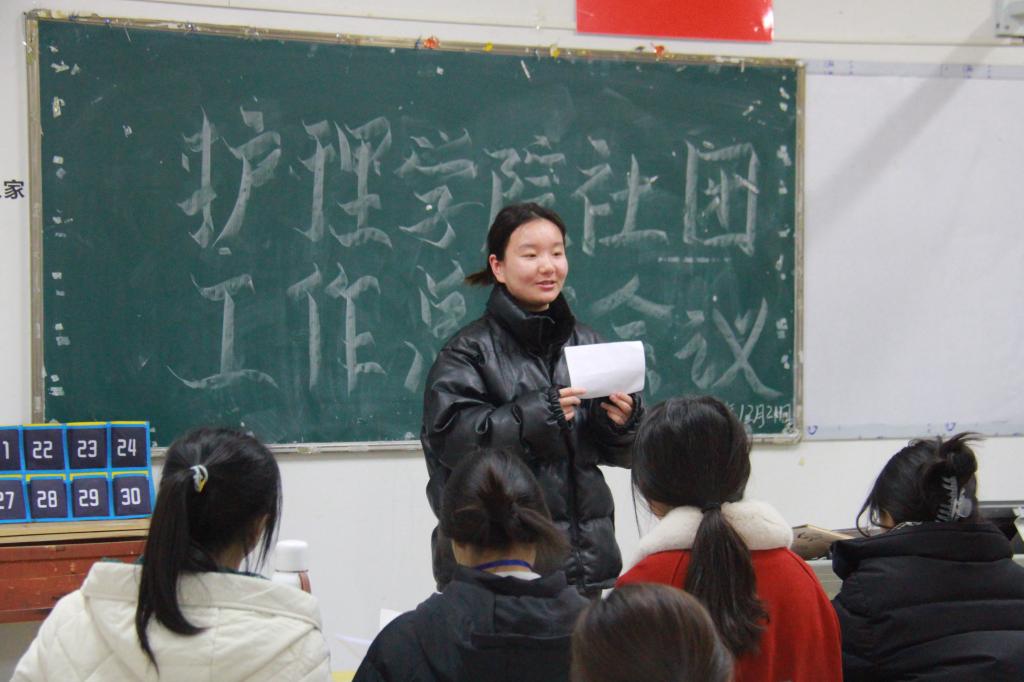 护理学院社团
工作总会议
12月21日
家
1 22 23 24
27 28 29 30